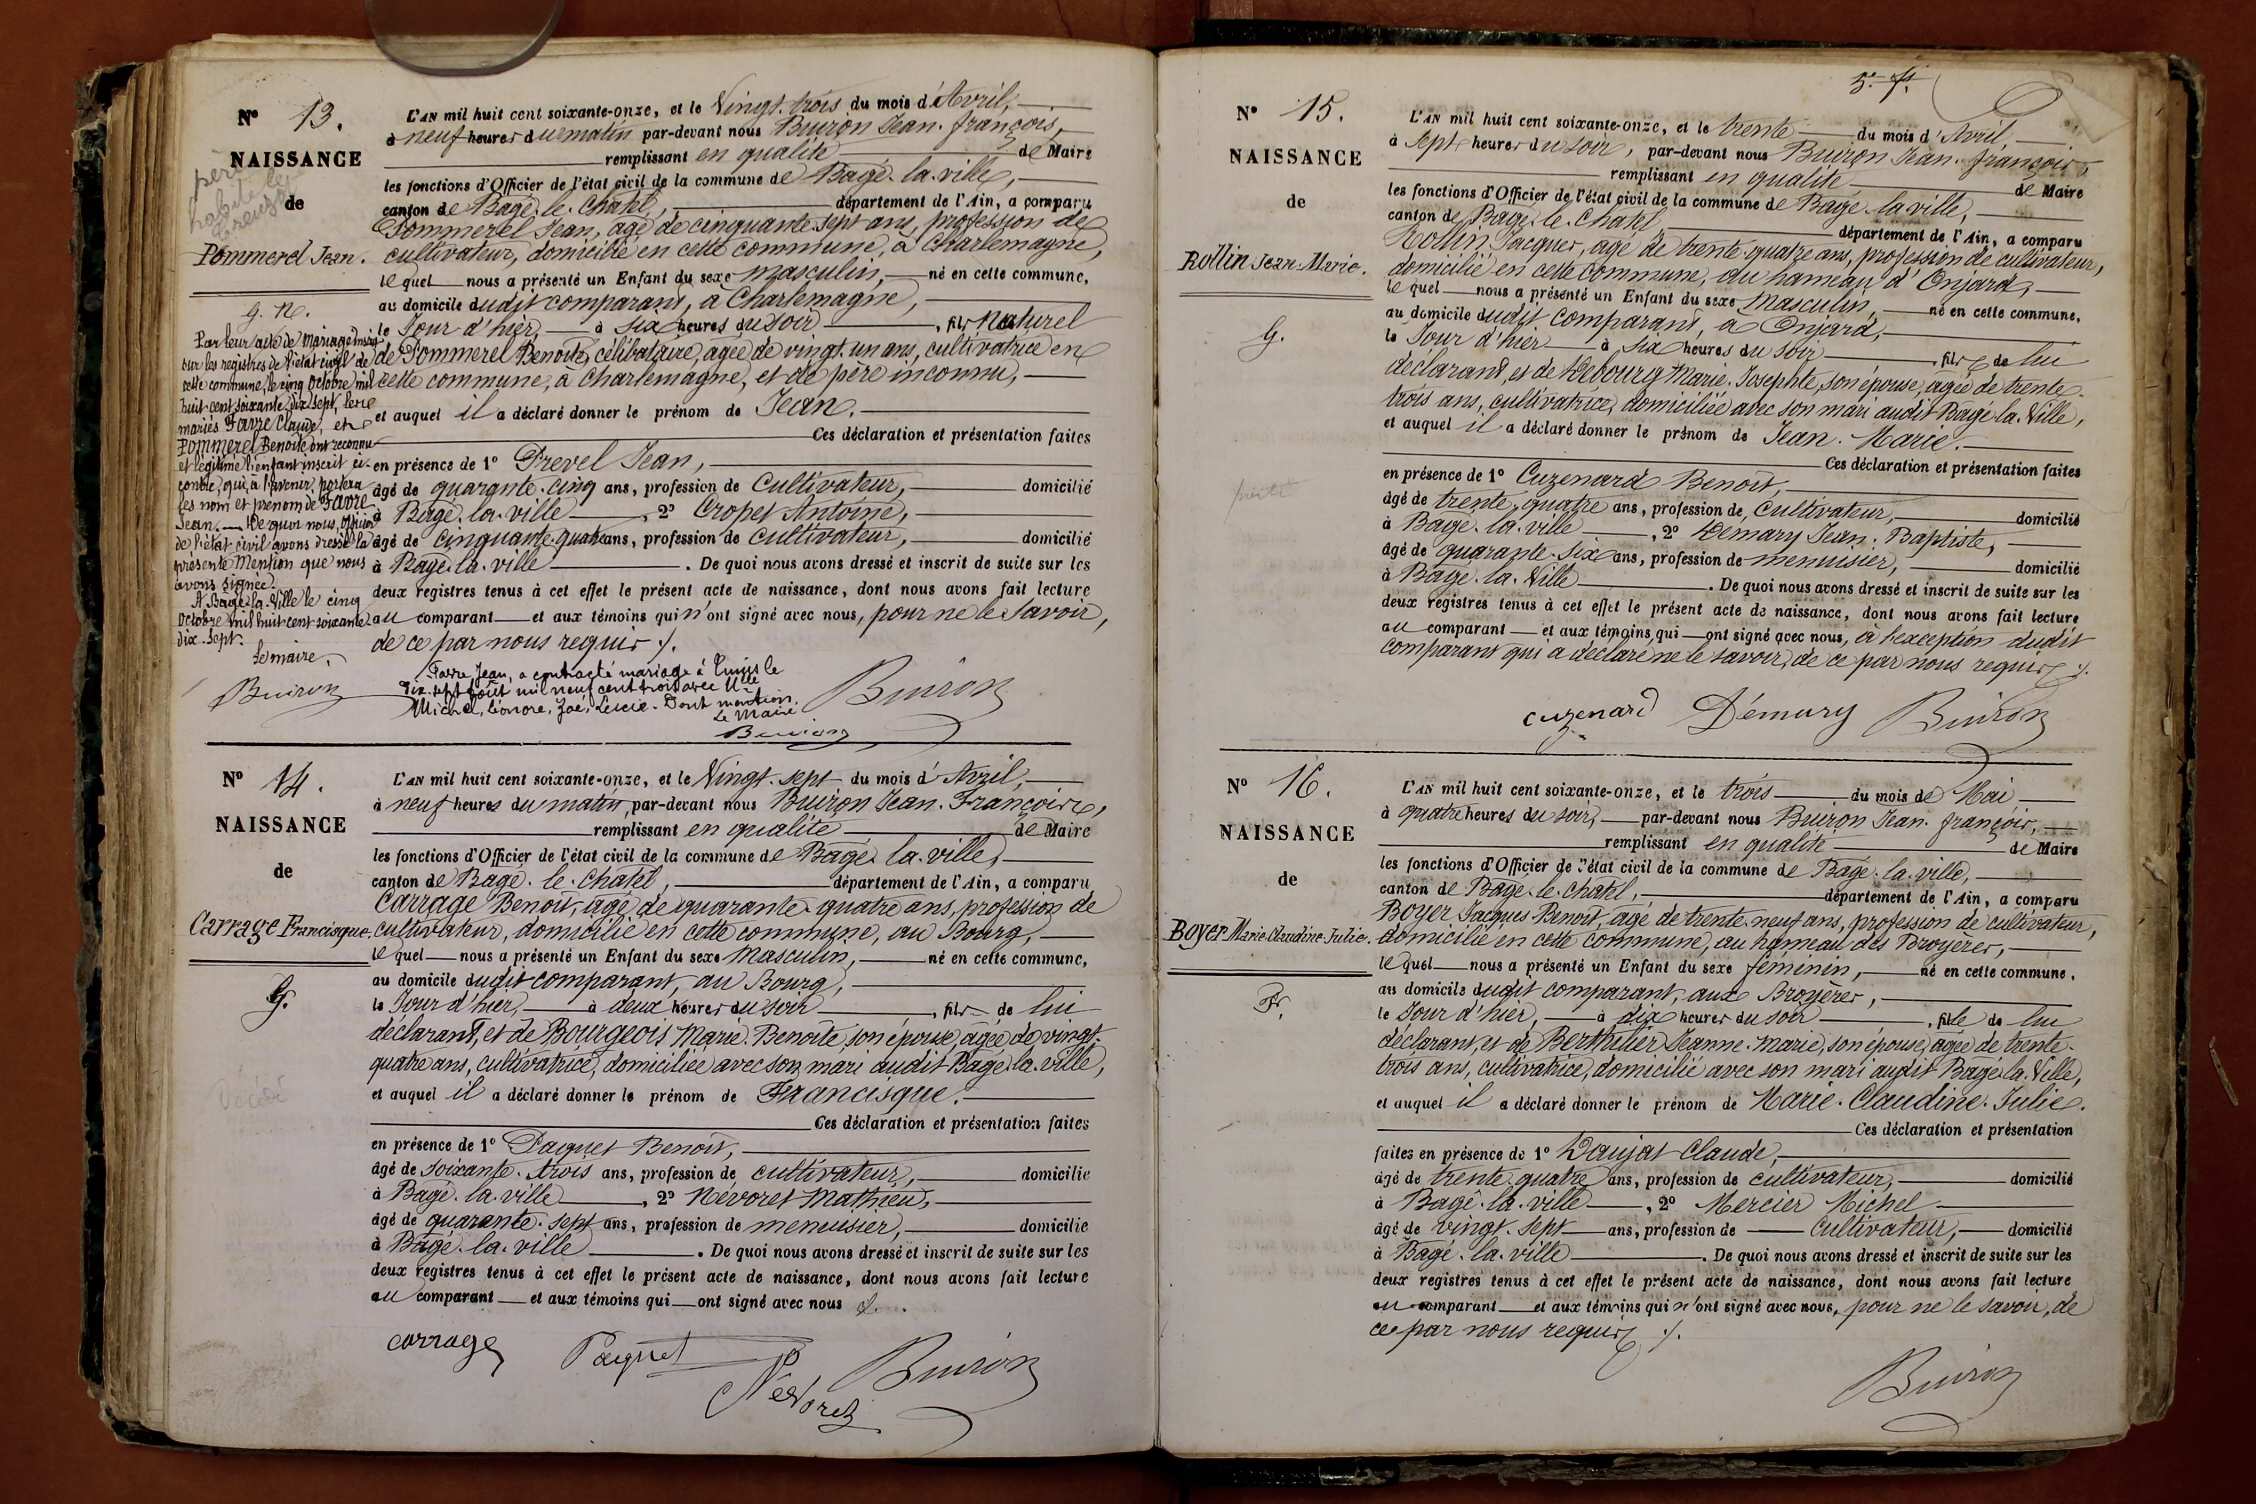 Nº 13.
NAISSANCE
de
Pommerel Jean.
G. N.
Par leur acte de mariage inscrit
sur les registres de l'état civil de
cette commune, le cinq Octobre mil
huit cent soixante dix sept, les
mariés Favre Claude, et
Pommerel Benoite ont reconnu
et légitimé l'enfant inscrit ci-
contre, qui, à l'avenir, portera
les nom et prénom de Favre
Jean. — De quoi nous, officier
de l'état civil avons dressé la
présente Mention que nous
avons signée.
A Bagé-la-Ville le cinq
Octobre mil huit cent soixante
dix-sept.
Le maire,
Buiron
L'AN mil huit cent soixante-onze, et le Vingt-trois du mois d'Avril,
à neuf heures du matin par-devant nous Buiron Jean-françois,
remplissant en qualité de Maire
les fonctions d'Officier de l'état civil de la commune de Bagé-la-ville,
canton de Bagé-le-Chatel, département de l'Ain, a comparu
Pommerel Jean, agé de cinquante sept ans, profession de
cultivateur, domicilié en cette commune, à Charlemagne,
le quel nous a présenté un Enfant du sexe masculin, né en cette commune,
au domicile dudit comparant, à Charlemagne,
le Jour d'hier, à six heures du soir, fils naturel
de Pommerel Benoite, célibataire, agée de vingt-un ans, cultivatrice en
cette commune, à Charlemagne, et de père inconnu,
et auquel il a déclaré donner le prénom de Jean.
Ces déclaration et présentation faites
en présence de 1º Prevel Jean,
âgé de quarante-cinq ans, profession de Cultivateur, domicilié
à Bagé-la-ville, 2º Cropet Antoine,
âgé de cinquante-quatre ans, profession de cultivateur, domicilié
à Bagé-la-ville. De quoi nous avons dressé et inscrit de suite sur les
deux registres tenus à cet effet le présent acte de naissance, dont nous avons fait lecture
au comparant et aux témoins qui n'ont signé avec nous, pour ne le savoir,
de ce par nous requis ./.
Favre Jean, a contracté mariage à le
dix-sept août mil neuf cent trois avec Mlle
Michel, Léonore, Zoé, Lucie. Dont mention.
Le Maire
Buiron
Buiron
Nº 14.
NAISSANCE
de
Carrage Francisque.
G.
Décédé
L'AN mil huit cent soixante-onze, et le Vingt-sept du mois d'Avril,
à neuf heures du matin, par-devant nous Buiron Jean-François,
remplissant en qualité de Maire
les fonctions d'Officier de l'état civil de la commune de Bagé-la-ville,
canton de Bagé-le-Chatel, département de l'Ain, a comparu
Carrage Benoit, agé de quarante-quatre ans, profession de
cultivateur, domicilié en cette commune, au Bourg,
le quel nous a présenté un Enfant du sexe Masculin, né en cette commune,
au domicile dudit comparant, au Bourg,
le Jour d'hier, à deux heures du soir, fils de lui
déclarant, et de Bourgeois Marie-Benoite, son épouse, agée de vingt-
quatre ans, cultivatrice, domiciliée avec son mari audit Bagé-la-ville,
et auquel il a déclaré donner le prénom de Francisque.
Ces déclaration et présentation faites
en présence de 1º Paquet Benoit,
âgé de soixante-trois ans, profession de cultivateur, domicilié
à Bagé-la-ville, 2º Névoret Mathieu,
âgé de quarante-sept ans, profession de menuisier, domicilié
à Bagé-la-ville. De quoi nous avons dressé et inscrit de suite sur les
deux registres tenus à cet effet le présent acte de naissance, dont nous avons fait lecture
au comparant et aux témoins qui ont signé avec nous ./.
carrage Paquet Buiron
Névoret
5. f.
Nº 15.
NAISSANCE
de
Rollin Jean-Marie.
G.
L'AN mil huit cent soixante-onze, et le trente du mois d'Avril
à sept heures du soir, par-devant nous Buiron Jean-françois,
remplissant en qualité de Maire
les fonctions d'Officier de l'état civil de la commune de Bagé-la-ville,
canton de Bagé-le-Chatel département de l'Ain, a comparu
Rollin Jacques, agé de trente-quatre ans, profession de cultivateur,
domicilié en cette commune, au hameau d'Onjard,
le quel nous a présenté un Enfant du sexe Masculin, né en cette commune,
au domicile dudit comparant, à Onjard,
le Jour d'hier à six heures du soir, fils de lui
déclarant, et de Debourg Marie-Josephte, son épouse, agée de trente-
trois ans, cultivatrice, domiciliée avec son mari audit Bagé-la-Ville,
et auquel il a déclaré donner le prénom de Jean-Marie.
Ces déclaration et présentation faites
en présence de 1º Cuzenard Benoit
âgé de trente-quatre ans, profession de Cultivateur, domicilié
à Bagé-la-ville, 2º Demary Jean-Baptiste,
âgé de quarante-six ans, profession de menuisier, domicilié
à Bagé-la-Ville. De quoi nous avons dressé et inscrit de suite sur les
deux registres tenus à cet effet le présent acte de naissance, dont nous avons fait lecture
au comparant et aux témoins qui ont signé avec nous, à l'exception dudit
comparant qui a déclaré ne le savoir, de ce par nous requis ./.
cuzenard Démury Buiron
Nº 16.
NAISSANCE
de
Boyer Marie-Claudine-Julie.
F.
L'AN mil huit cent soixante-onze, et le trois du mois de Mai
à quatre heures du soir, par-devant nous Buiron Jean-françois,
remplissant en qualité de Maire
les fonctions d'Officier de l'état civil de la commune de Bagé-la-ville,
canton de Bagé-le-chatel, département de l'Ain, a comparu
Boyer Jacques Benoit, agé de trente-neuf ans, profession de cultivateur,
domicilié en cette commune, au hameau des Broyères,
le quel nous a présenté un Enfant du sexe féminin, né en cette commune,
au domicile dudit comparant, aux Broyères,
le Jour d'hier, à dix heures du soir, fille de lui
déclarant, et de Berthilier Jeanne-Marie, son épouse, agée de trente-
trois ans, cultivatrice, domicilié avec son mari audit Bagé-la-Ville,
et auquel il a déclaré donner le prénom de Marie-Claudine-Julie.
Ces déclaration et présentation
faites en présence de 1º Daujat Claude,
âgé de trente-quatre ans, profession de cultivateur, domicilié
à Bagé-la-ville, 2º Mercier Michel
âgé de vingt-sept ans, profession de cultivateur, domicilié
à Bagé-la-ville. De quoi nous avons dressé et inscrit de suite sur les
deux registres tenus à cet effet le présent acte de naissance, dont nous avons fait lecture
au comparant et aux témoins qui n'ont signé avec nous, pour ne le savoir, de
ce par nous requis ./.
Buiron